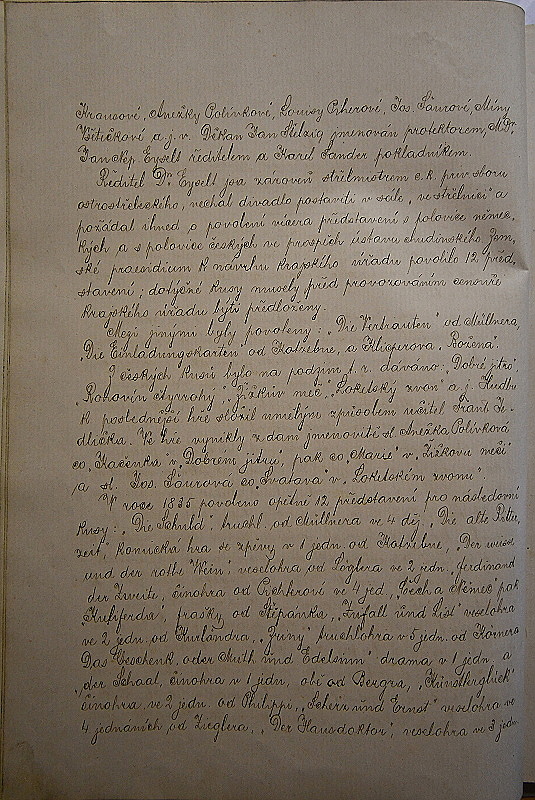 Krausové, Anežky Polívkové, Louisy Pcherové, Jos. Šaurové, Miny
Větíčkové a j. v. Děkan Jan Stelzig jmenován protektorem, M. Dr.
Jan Nep. Eyselt ředitelem a Karel Sander pokladníkem.
Ředitel Dr. Eyselt jsa zároveň střelmistrem c. k. priv. sboru
ostrostřeleckého, nechal divadlo postaviti v sále „ve střelnici“ a
požádal ihned o povolení vícera představení s polovice němec-
kých a s polovice českých ve prospěch ústavu chudinského. Zem-
ské praesidium k návrhu krajského úřadu povolilo 12 před-
stavení; dotyčné kusy musely před provozováním censuře
krajského úřadu býti předloženy.
Mezi jinými byly povoleny: „Die Vertrauten“ od Müllnera,
„Die Einladungskarten“ od Kotzebue, a Klicperova „Božena“.
Z českých kusů bylo na podzim t. r. dáváno: „Dobré jitro“,
„Rohovín čtverrohý“, „Žižkův meč“, „Loketský zvon“ a j. Hudbu
k poslednější hře složil umělým způsobem učitel Frant. Je-
dlička. Ve hře vynikly z dam jmenovitě sl. Anežka Polívková
co „Kačenka“ v „Dobrém jitru“, pak co „Marie“ v „Žižkovu meči“
a sl. Jos. Šaurová co „Svatava“ v „Loketském zvonu“.
V roce 1835 povoleno opětně 12 představení pro následovní
kusy: „Die Schuld“, truchl. od Müllnera ve 4 děj., „Die alte Ritter-
zeit“, komická hra se zpěvy v 1 jedn. od Kotzebue, „Der weisse
und der rothe Wein“, veselohra od Löglera ve 2 jedn., „Ferdinand
der Zweite“, činohra od Pichlerové ve 4 jed., „Čech a Němec“ pak
frašky od Štěpánka, „Zufall und List“ veselohra
ve 2 jedn. od Kurländra, „Zriny“, truchlohra v 5 jedn. od Körnera
„Das Geschenk, oder Muth und Edelsinn“ drama v 1 jedn. a
„der Schaal“, činohra v 1 jedn., obě od Bergra, „Künstlerglück“
činohra ve 2 jedn. od Philippi, „Scherz und Ernst“ veselohra ve
4 jednáních od Zieglera, „Der Hausdoktor“, veselohra ve 3 jedn.